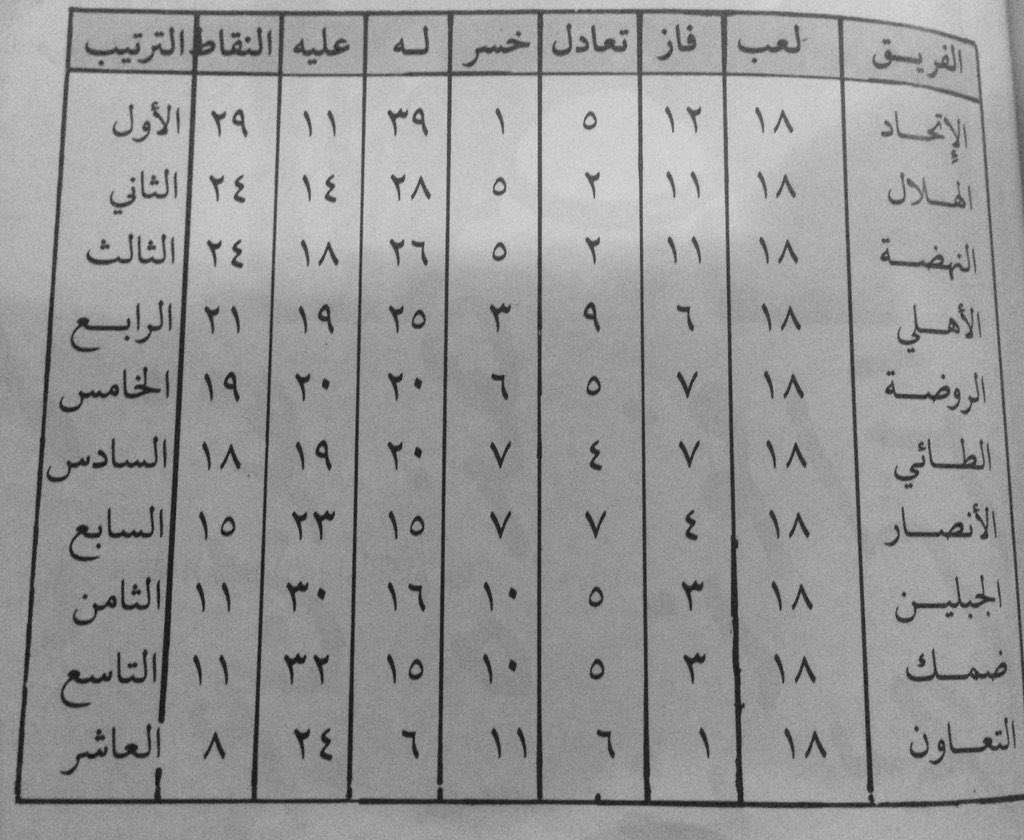 الفريق لعب فاز تعادل خسر له عليه النقاط الترتيب
الإتحاد ١٨ ١٢ ٥ ١ ٣٩ ١١ ٢٩ الأول
الهلال ١٨ ١١ ٢ ٥ ٢٨ ١٤ ٢٤ الثاني
النهضة ١٨ ١١ ٢ ٥ ٢٦ ١٨ ٢٤ الثالث
الأهلي ١٨ ٦ ٩ ٣ ٢٥ ١٩ ٢١ الرابع
الروضة ١٨ ٧ ٥ ٦ ٢٠ ٢٠ ١٩ الخامس
الطائي ١٨ ٧ ٤ ٧ ٢٠ ١٩ ١٨ السادس
الأنصار ١٨ ٤ ٧ ٧ ١٥ ٢٣ ١٥ السابع
الجبلين ١٨ ٣ ٥ ١٠ ١٦ ٣٠ ١١ الثامن
ضمك ١٨ ٣ ٥ ١٠ ١٥ ٣٢ ١١ التاسع
التعاون ١٨ ١ ٦ ١١ ٦ ٢٤ ٨ العاشر